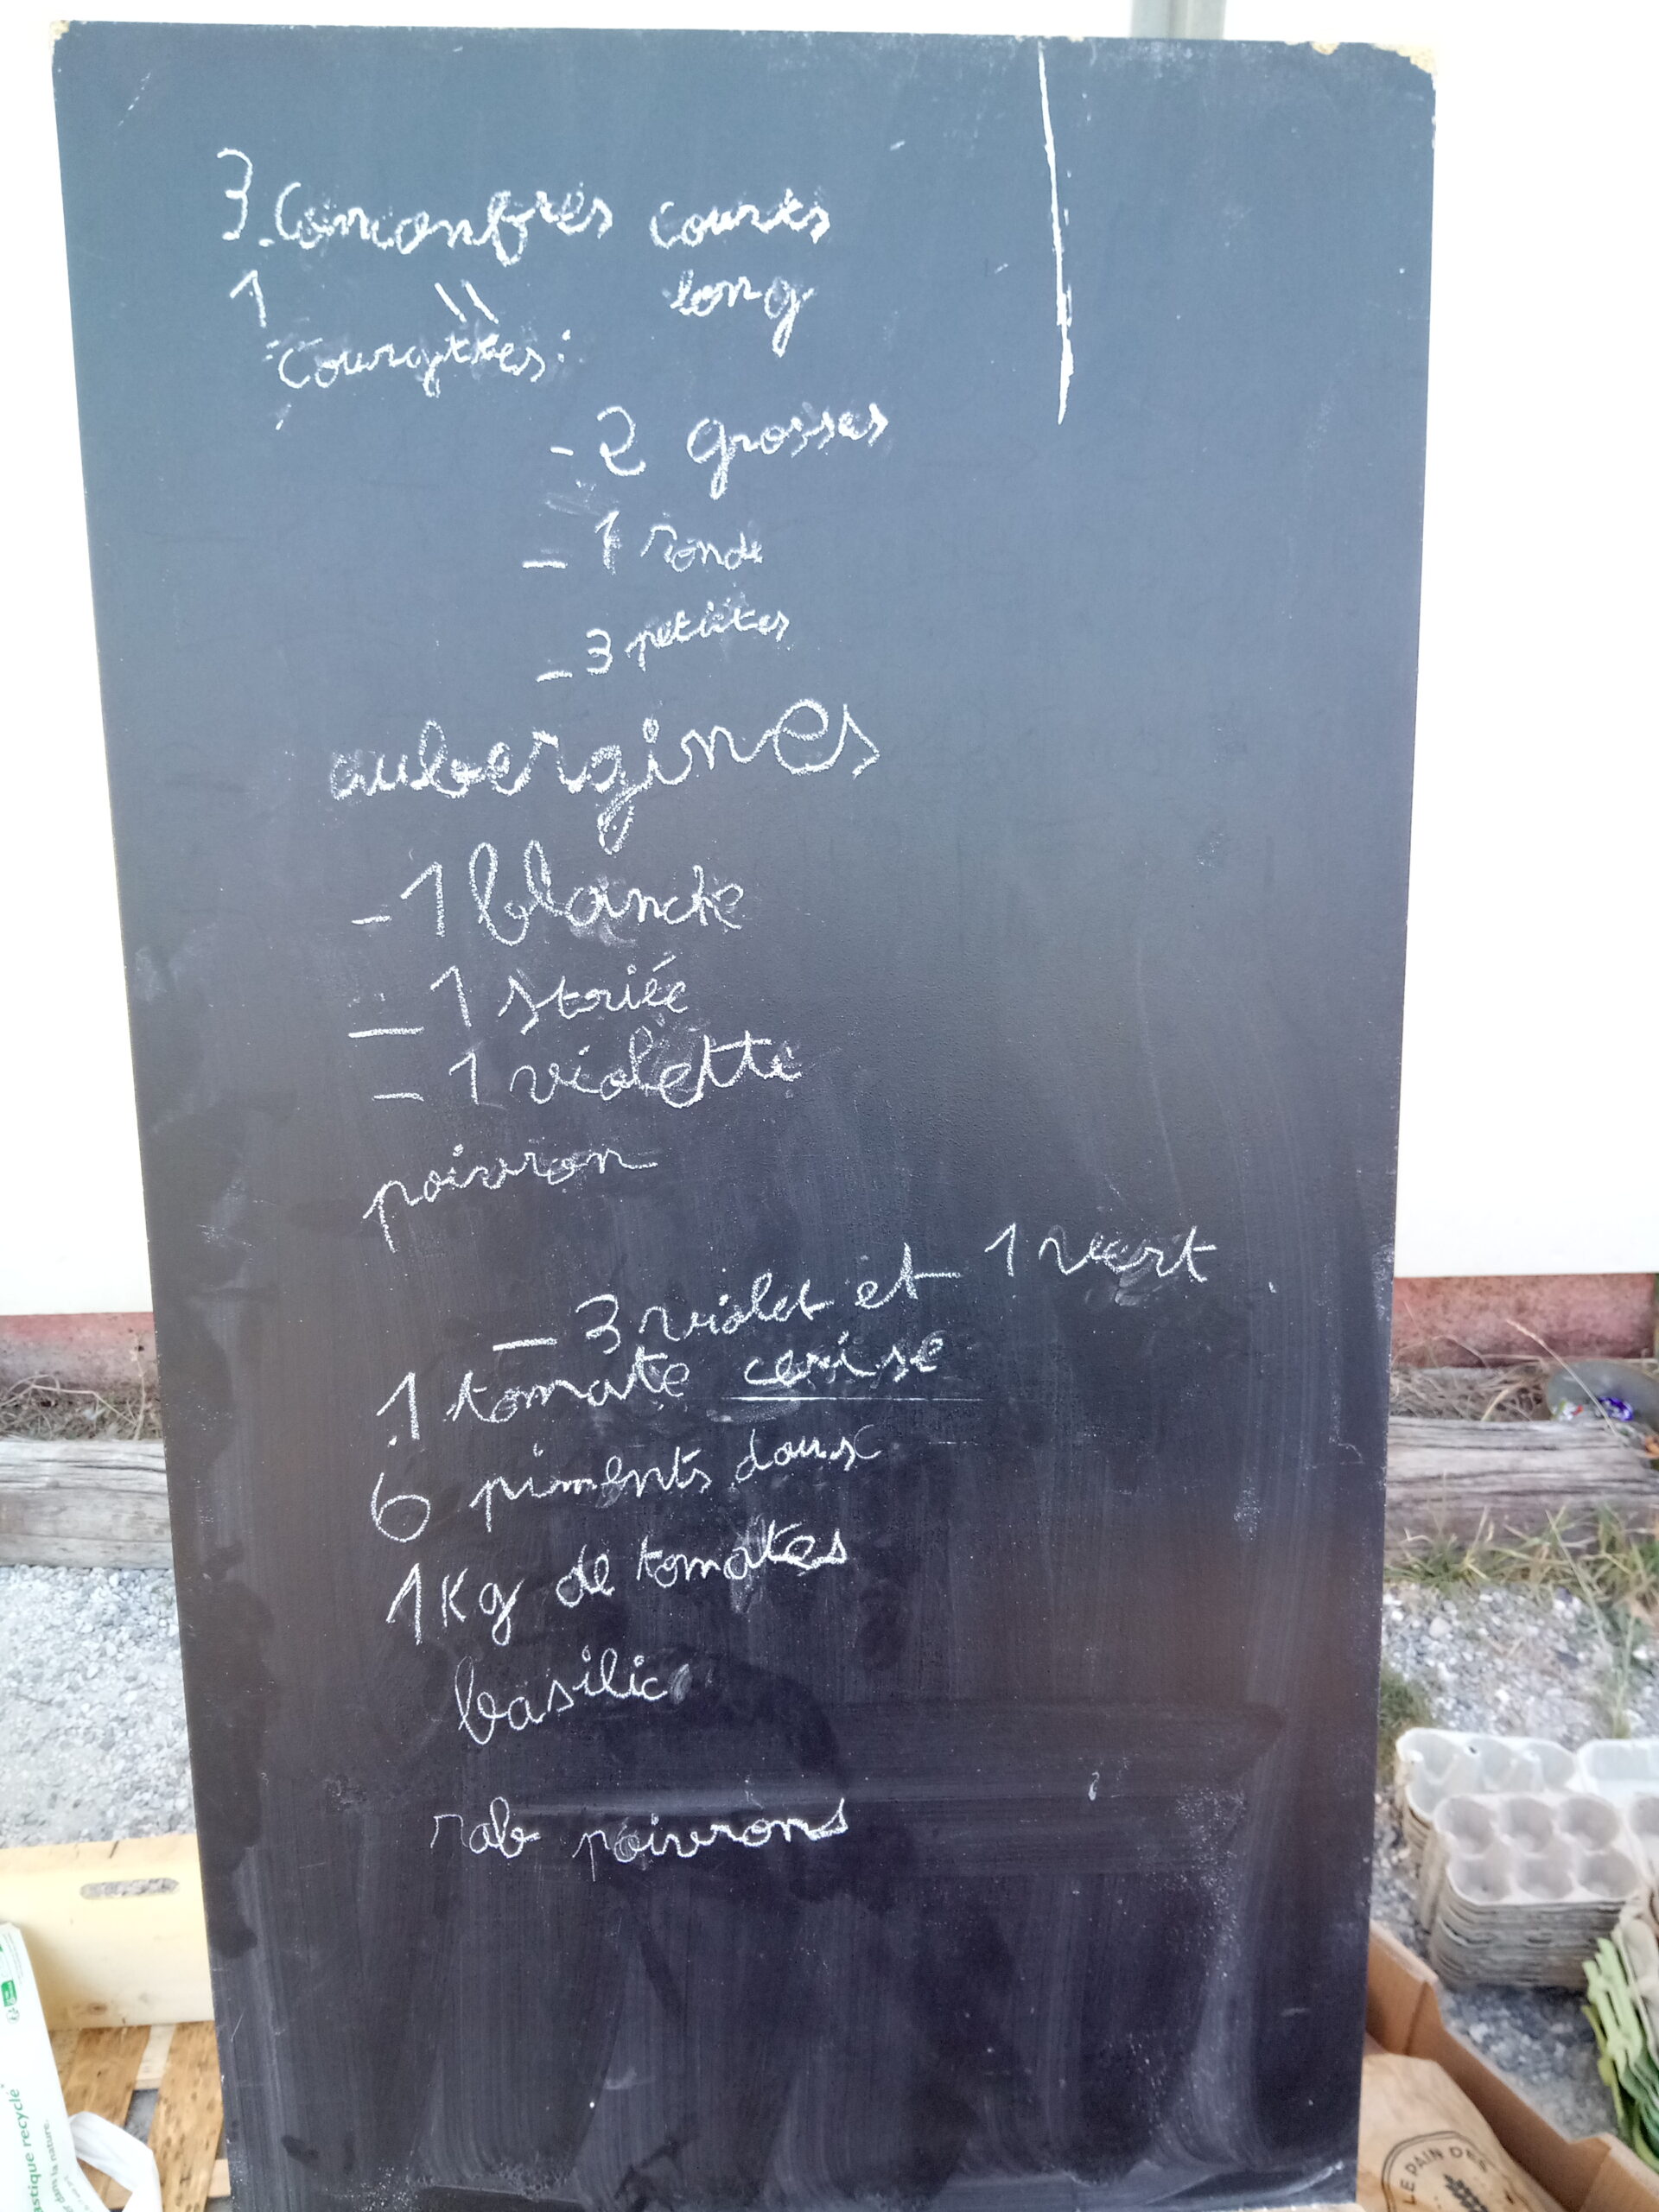 3. Concombres courts
1 " long
Courgettes:
- 2 grosses
- 1 ronde
- 3 petites
aubergines
- 1 blanche
- 1 striée
- 1 violette
poivron
- 3 violet et 1 vert
1 tomate cerise
6 piments doux
1 Kg de tomates
basilic
rab poivrons
astique recyclé
dans la nature.
LE PAIN DES